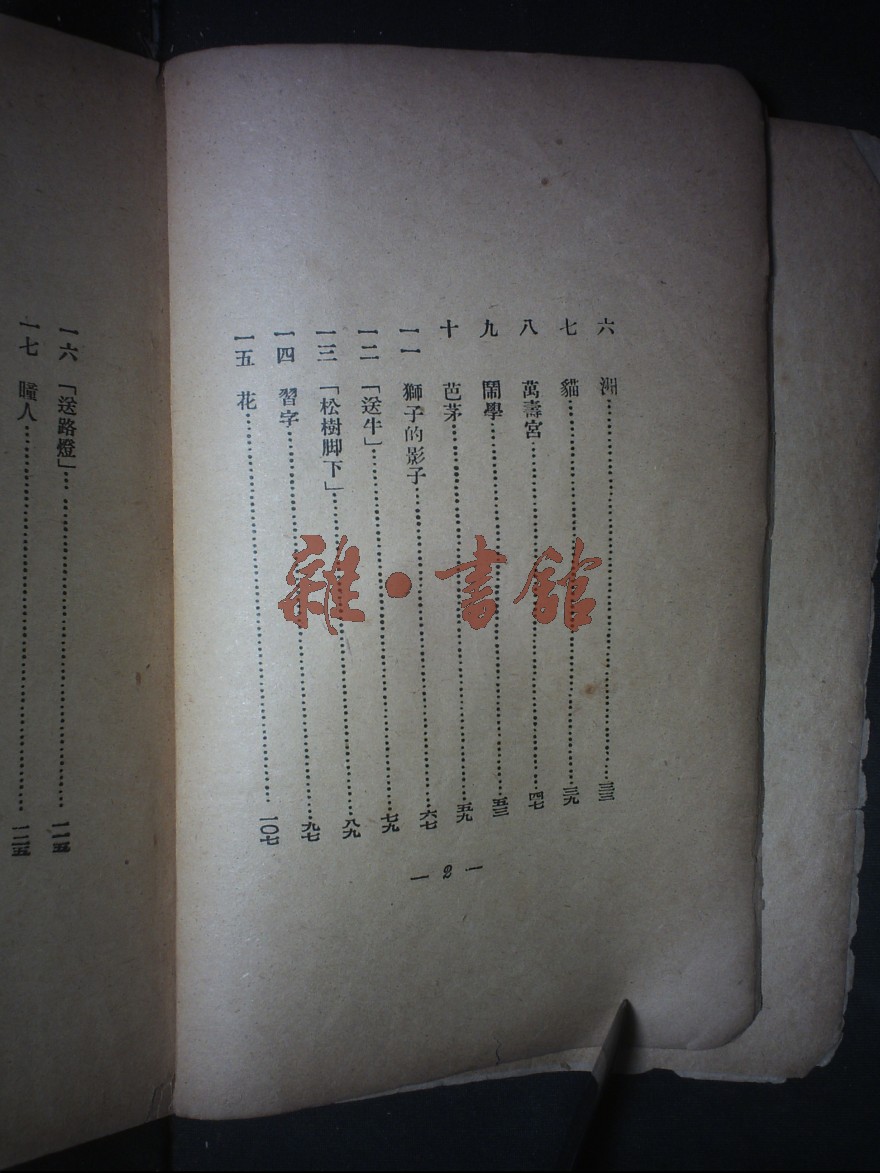 六　洲……三三
七　貓……三九
八　萬壽宮……四七
九　鬧學……五三
十　芭茅……五九
一一　獅子的影子……六七
一二　「送牛」……七九
一三　「松樹脚下」……八九
一四　習字……九七
一五　花……一〇七
— 2 —
一六　「送路燈」……一一五
一七　瞳人……一二五
雜·書館